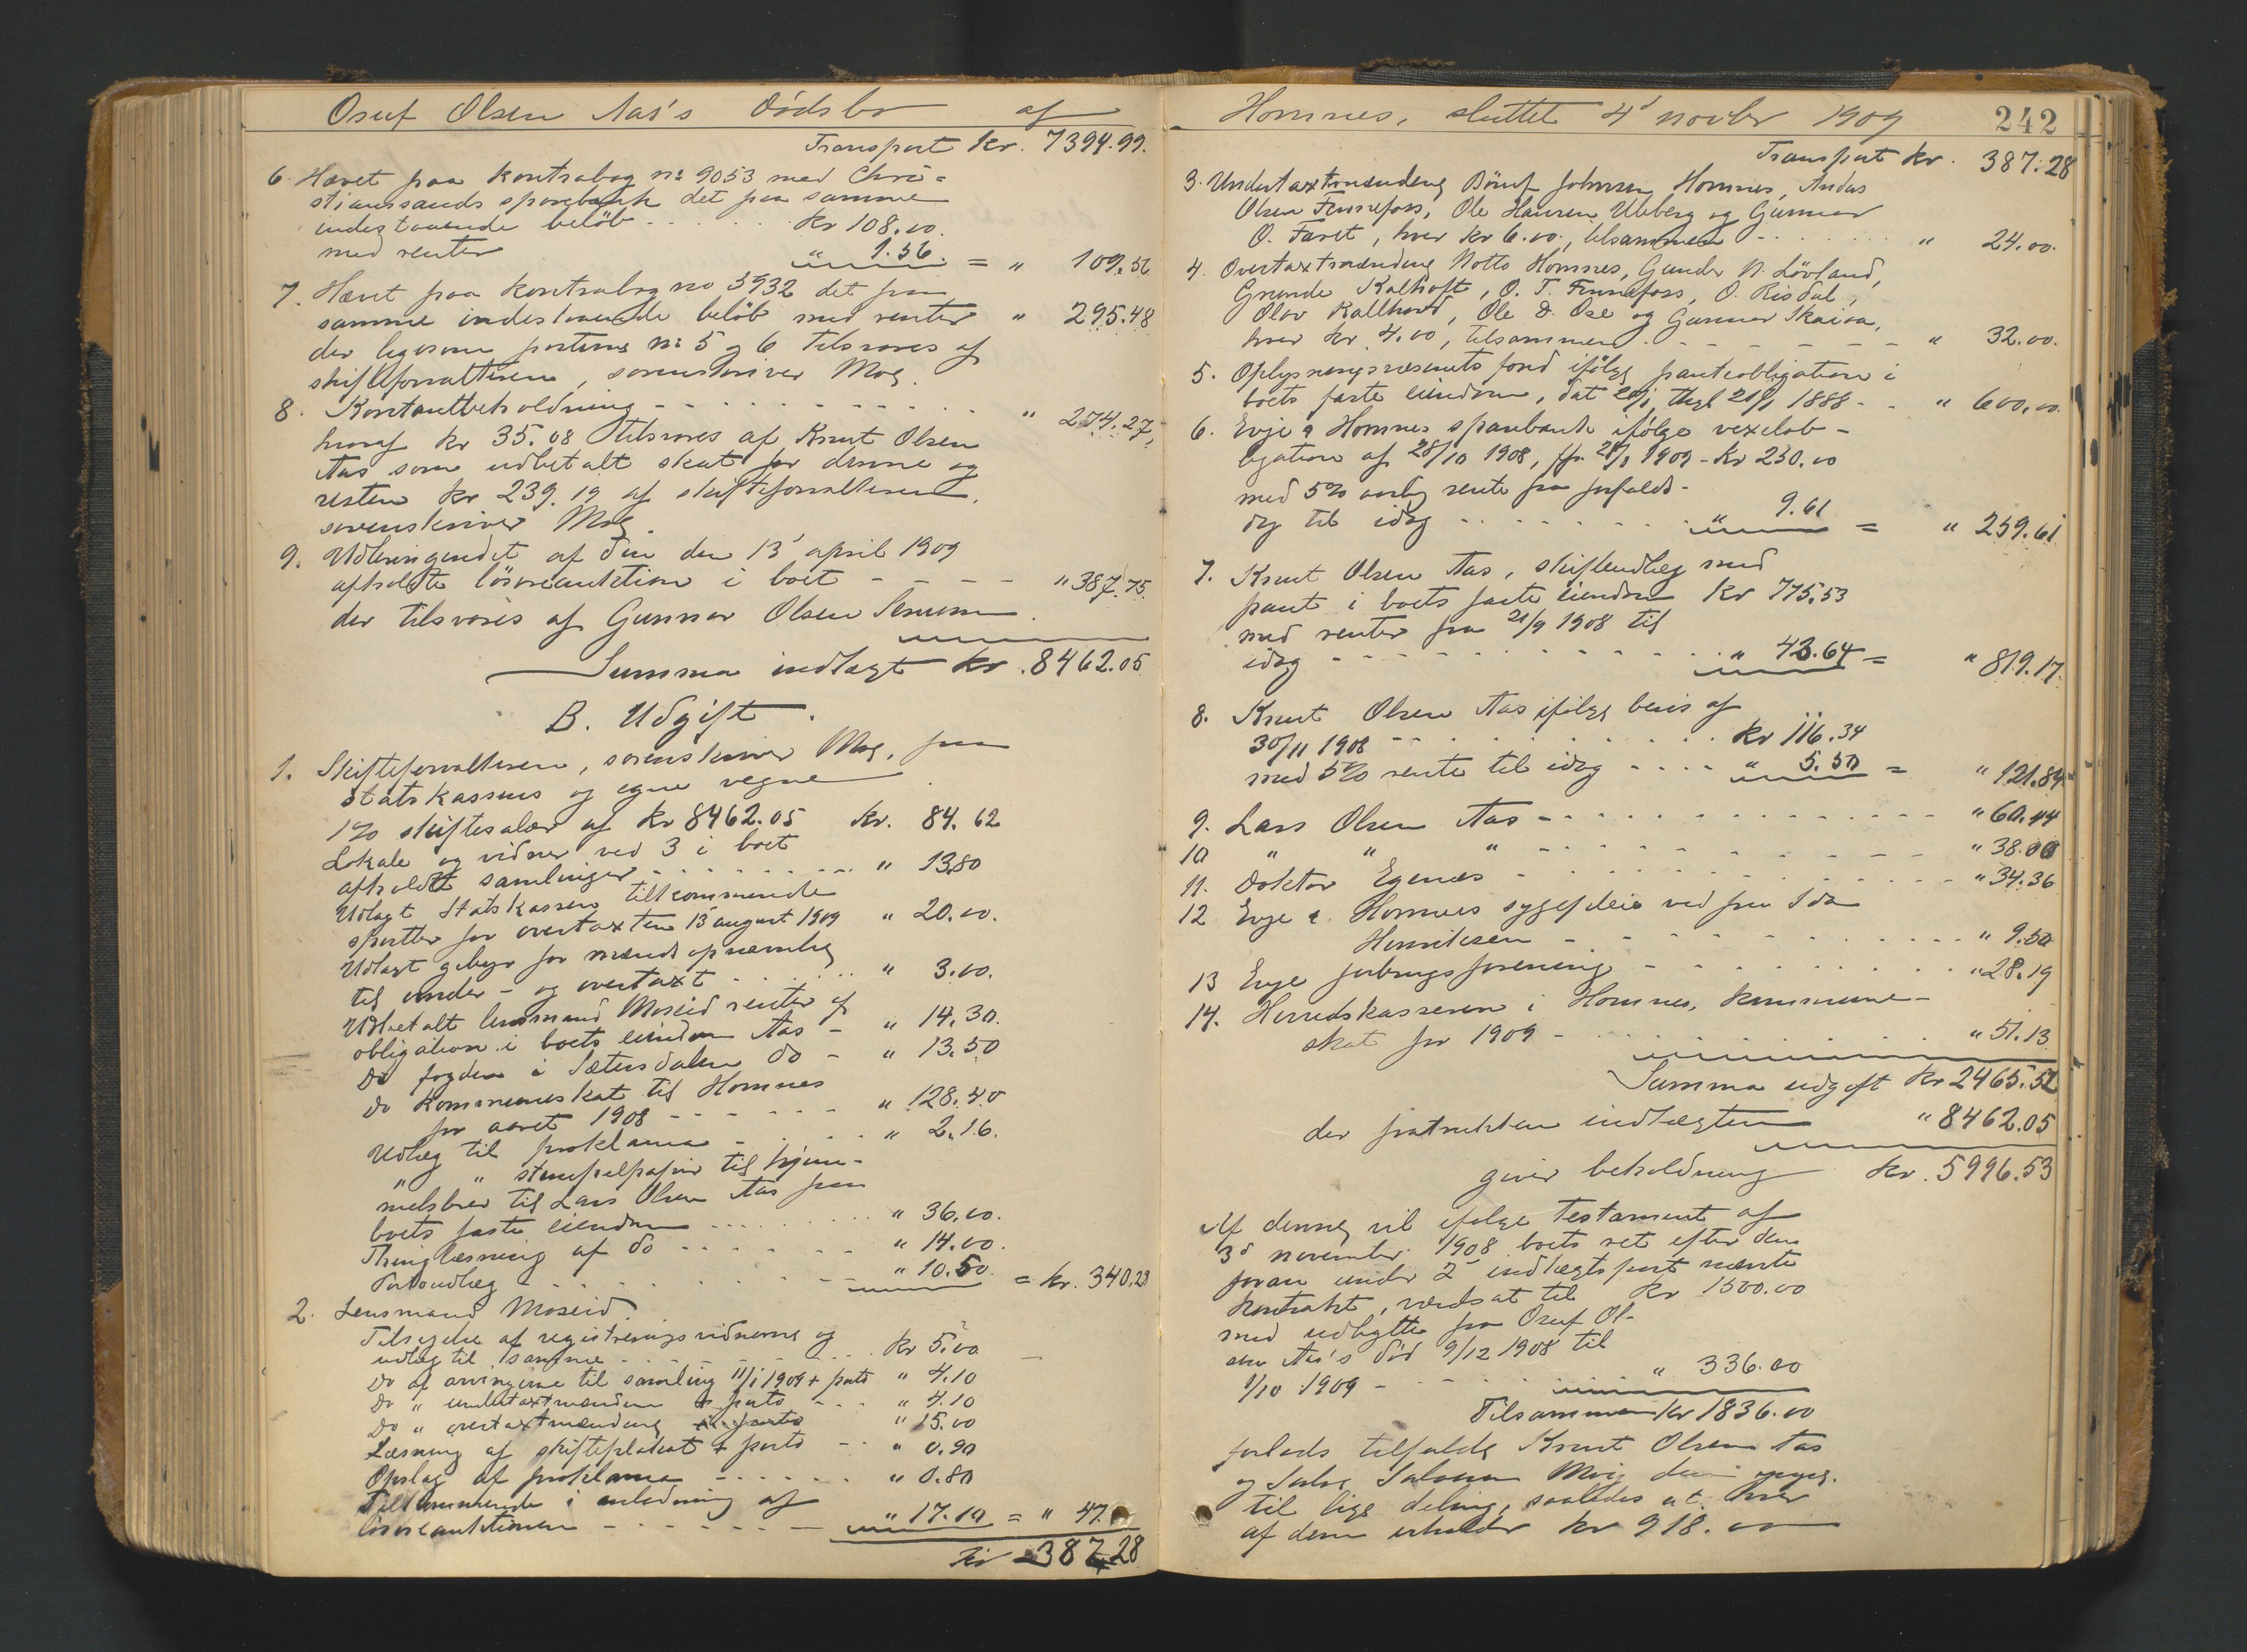 Osuf Olsen Aas's dödsbo af
Transport kr. 7394.99.
6. Hævet paa kontrabog no 9053 med Chri=
stianssands sparebank det paa samme
indestaaende beløb - - - - kr 108.00.
med renter " 1.56. = " 109.56
7. Hævet paa kontrabog no 3932 det paa
samme indestaaende beløb med renter " 295.48
der ligesom posterne no 5 og 6 tilsvares af
skifteforvalteren, sorenskriver Moe.
8. Kontantbeholdning - - - - - - - " 274.27,
hvoraf kr 35.08 tilsvares af Knut Olsen
Aas som udbetalt skat for denne og
resten kr 239.19 af skifteforvalteren,
sorenskriver Moe.
9. Udbringendet af den den 13' april 1909
afholdte lösøreauktion i boet - - - - " 387.75.
der tilsvares af Gunnar Olsen Senum.
Summa indtægt kr. 8462.05
B. Udgift.
1. Skifteforvalteren, sorenskriver Moe, paa
statskassens og egne vegne
1% skiftesalær af kr 8462.05 kr. 84.62
Lokale og vidner ved 3 i boet
afholdte samlinger - - - - " 13.80
Udlagt Statskassen tilkommende
sportler for overtaxten 13' august 1909 " 20.00.
Udlagt gebyr for mænds opnævnelse
til under- og overtaxt - - - - " 3.00.
Udbetalt lensmand Moseid renter af
obligation i boets eiendom Aas - " 14.30.
Do fogden i Sætersdalen do - " 13.50
Do kommuneskat til Hornnes
for aaret 1908 - - - - - " 128.40
Udlæg til proklama - - - - " 2.16.
" " stempelpapir til hjem-
melsbrev til Lars Olsen Aas paa
boets faste eiendom - - - - " 36.00.
Thinglæsning af do - - - - - " 14.00.
Portoudlæg - - - - - - " 10.50. = kr. 340.28
2. Lensmand Moseid.
Tilsigelse af registreringsvidnerne og
udlæg til samme - - - - kr 5.00
Do af arvingerne til samling 11/1 1909 + porto " 4.10
Do " undertaxtmændene + porto - - " 4.10
Do " overtaxtmændene + porto " 15.00
Læsning af skifteplakat + porto - - " 0.90
Opslag af proklama - - - - - " 0.80
Tilkommende i anledning af
lösøreauktionen - - - - - " 17.10 = " 47.
kr 387.28
Hornnes, sluttet 4' novbr 1909 242
Transport kr. 387.28
3. Undertaxtmændene Böruf Johnsen Hornnes, Andas
Olsen Fennefoss, Ole Hansen Uleberg og Gunnar
O. Faret, hver kr 6.00., tilsammen - - - - " 24.00.
4. Overtaxtmændene Notto Hornnes, Gunder N. Lövland,
Grunde Kalhoft, O. T. Fennefoss, O. Risdal,
Olav Kallhovd, Ole D. Ose og Gunnar Skaiaa,
hver kr 4.00, tilsammen - - - - - - " 32.00.
5. Oplysningsvæsenets fond ifölge panteobligation i
boets faste eiendom, dat 20/1, thgl 21/1 1888 - - " 600.00.
6. Evje & Hornnes sparebank ifölge vexelob-
ligation af 28/10 1908, ff. 28/1 1909 - kr 250.00
med 5% aarlig rente fra forfalds-
dag til idag - - - - - - " 9.61 = " 259.61
7. Knut Olsen Aas, skifteudlæg med
pant i boets faste eiendom kr 775.53
med renter fra 21/9 1908 til
idag - - - - - - - - " 43.64 = " 819.17.
8. Knut Olsen Aas ifölge bevis af
30/11 1908 - - - - - - - kr 116.34
med 5% rente til idag - - - - " 5.50 = " 121.84
9. Lars Olsen Aas - - - - - - - - " 60.44
10 " " " - - - - - - - - " 38.00
11. Doktor Egenæs - - - - - - - " 34.36
12 Evje & Hornnes sygepleie ved frk Ida
Henriksen - - - - - - - - " 9.50
13 Evje forbrugsforening - - - - - - " 28.19
14. Herredskasseren i Hornnes, kommune-
skat for 1909 - - - - " 51.13
Summa udgift kr 2465.52
der fratrukken indtægten " 8462.05
giver beholdning kr. 5996.53
Af denne vil ifölge testament af
3d november 1908 boets ret efter den
foran under 2' indtægtspost nævnte
kontrakt, værdsat til kr 1500.00
med udbytte fra Osuf Ol-
sen Aas's död 9/12 1908 til
1/10 1909 - - - - - - " 336.00
Tilsammen kr 1836.00
forlods tilfalde Knut Olsen Aas
og Salve Moi
til lige deling, saaledes at hver
af dem erholder kr 918.00